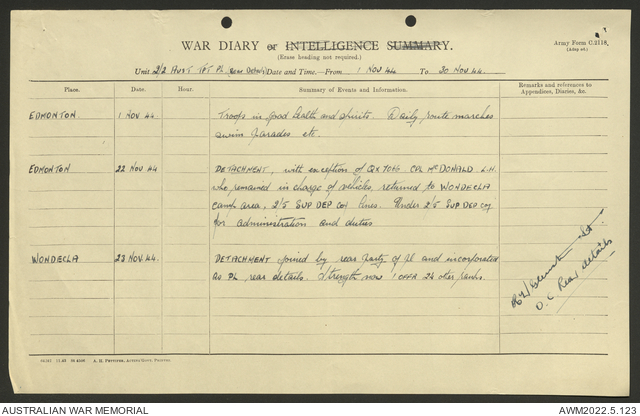 WAR DIARY or INTELLIGENCE SUMMARY.
(Erase heading not required.)
Army Form C.2118.
(Adap. et.)
Unit 2/2 AUST TPT PL (Rear Details) Date and Time.—From 1 NOV 44 To 30 NOV 44.
Place. Date. Hour. Summary of Events and Information. Remarks and references to
Appendices, Diaries, &c.
EDMONTON 1 NOV 44 Troops in good health and spirits. Daily route marches
swim parades etc.
EDMONTON 22 NOV 44 DETACHMENT, with exception of QX 7086 CPL McDONALD L.H.
who remained in charge of vehicles, returned to WONDECLA
camp area, 2/5 SUP DEP coy lines. Under 2/5 SUP DEP coy
for administration and duties
WONDECLA 23 NOV 44. DETACHMENT joined by rear party of pl and incorporated
as PL rear details. Strength now 1 OFFR 24 other ranks.
Lt.
O.C. Rear details
A. H. PETTIFER, ACTING GOVT. PRINTER.
AUSTRALIAN WAR MEMORIAL
AWM2022.5.123